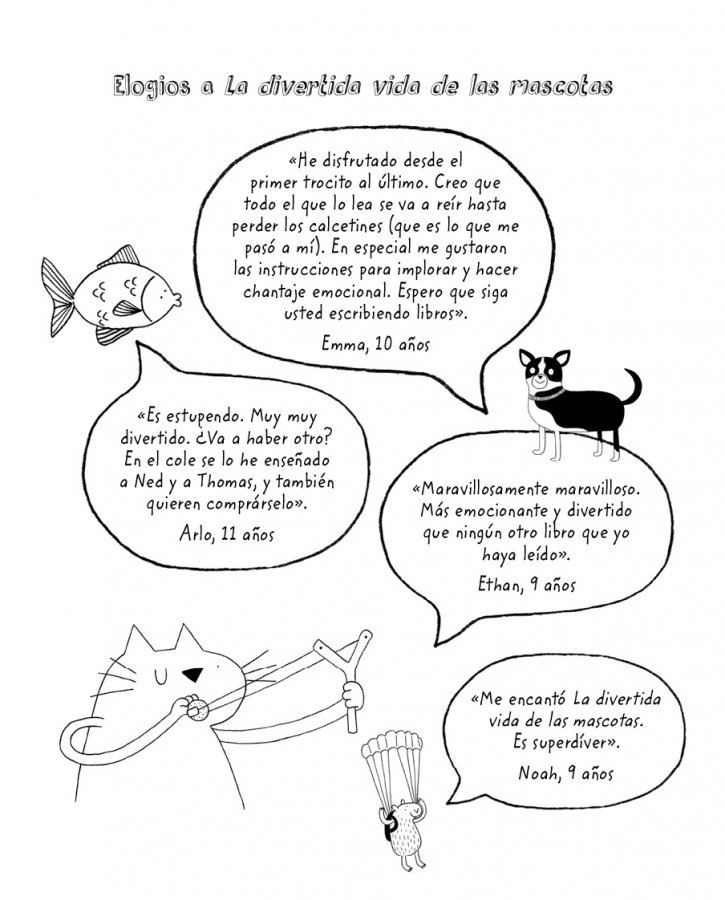 Elogios a La divertida vida de las mascotas
«He disfrutado desde el
primer trocito al último. Creo que
todo el que lo lea se va a reír hasta
perder los calcetines (que es lo que me
pasó a mí). En especial me gustaron
las instrucciones para implorar y hacer
chantaje emocional. Espero que siga
usted escribiendo libros».
Emma, 10 años
«Es estupendo. Muy muy
divertido. ¿Va a haber otro?
En el cole se lo he enseñado
a Ned y a Thomas, y también
quieren comprárselo».
Arlo, 11 años
«Maravillosamente maravilloso.
Más emocionante y divertido
que ningún otro libro que yo
haya leído».
Ethan, 9 años
«Me encantó La divertida
vida de las mascotas.
Es superdíver».
Noah, 9 años